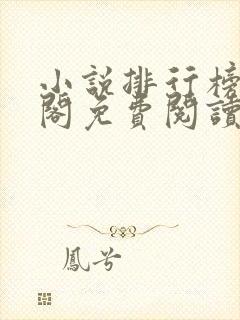 小說排行榜
閣免費閱讀
鳳兮